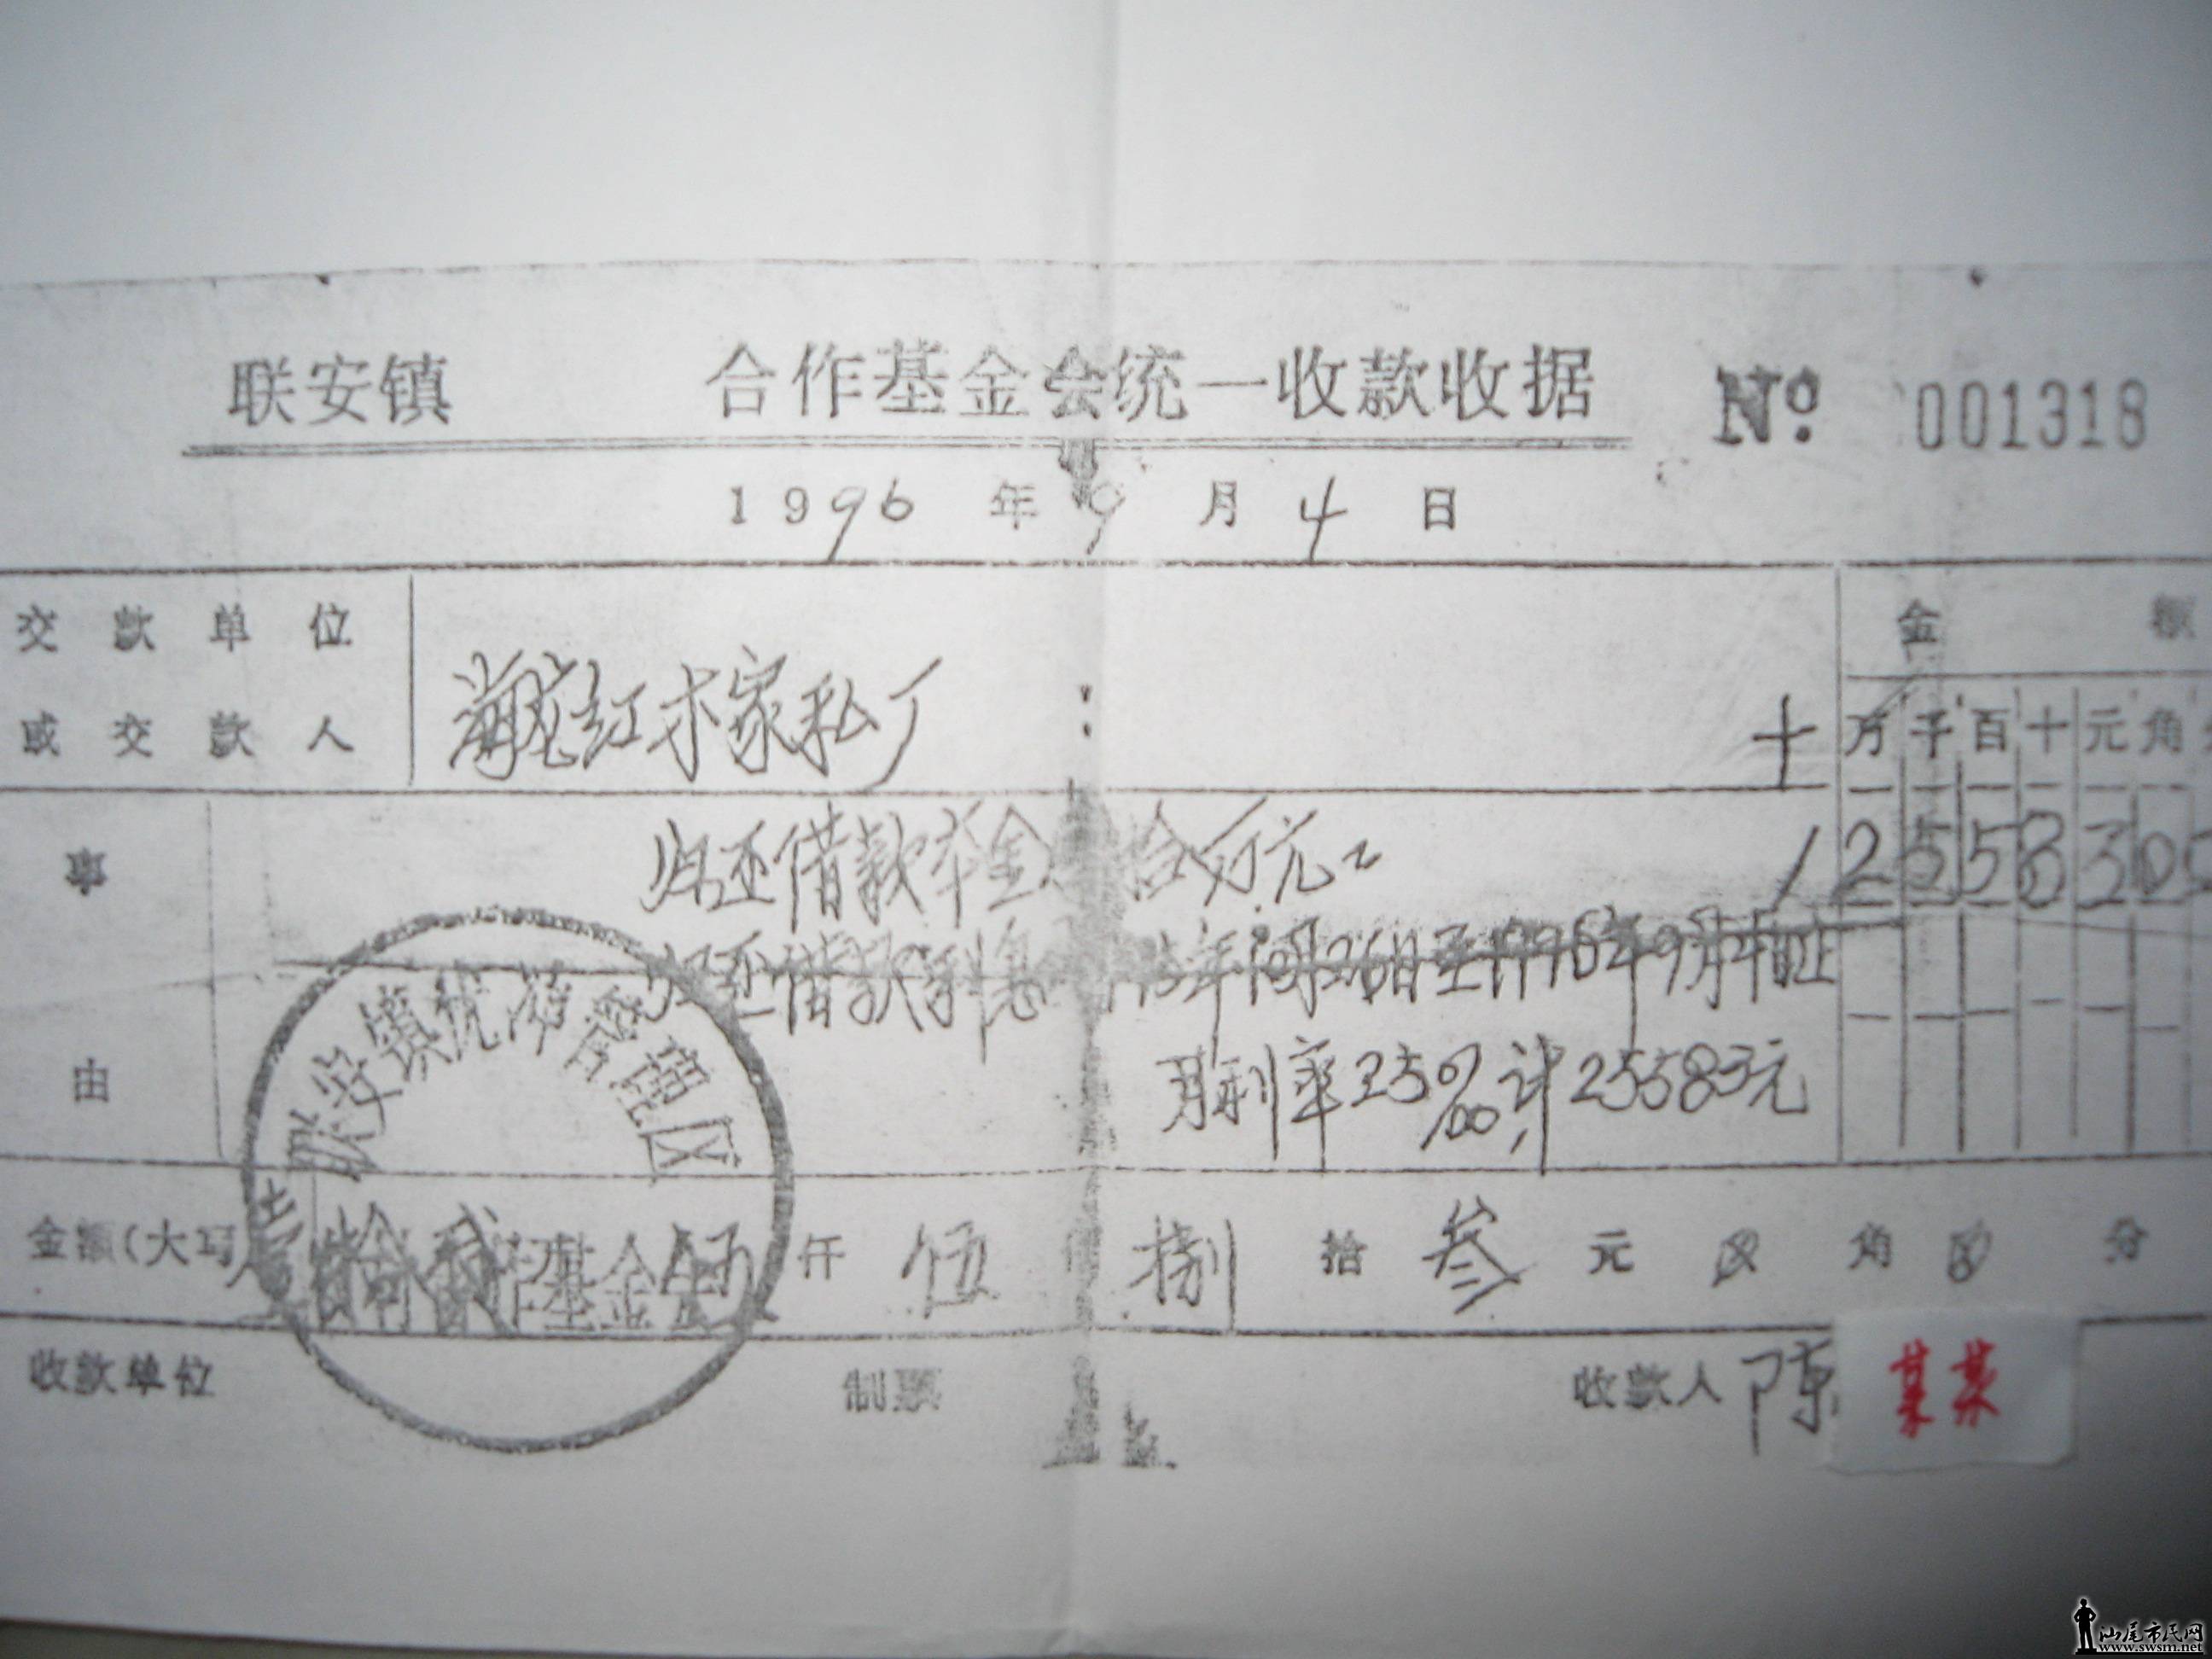 联安镇 合作基金会统一收款收据 Nº 001318
1996 年 9 月 4 日
交款单位 金额
或交款人 红木家私厂 十万千百十元角
事 归还借款本金 拾万元 1255830
归还借款利息 年10月26日至1996年9月4日止
由 月利率25‰计25583元
联安镇优 管理区
金额(大写 壹拾贰 伍 仟 伍 捌 拾 叁 元 角 分
基金会
收款单位 制票 收款人 陈 某某
汕尾市民网
www.swsm.net